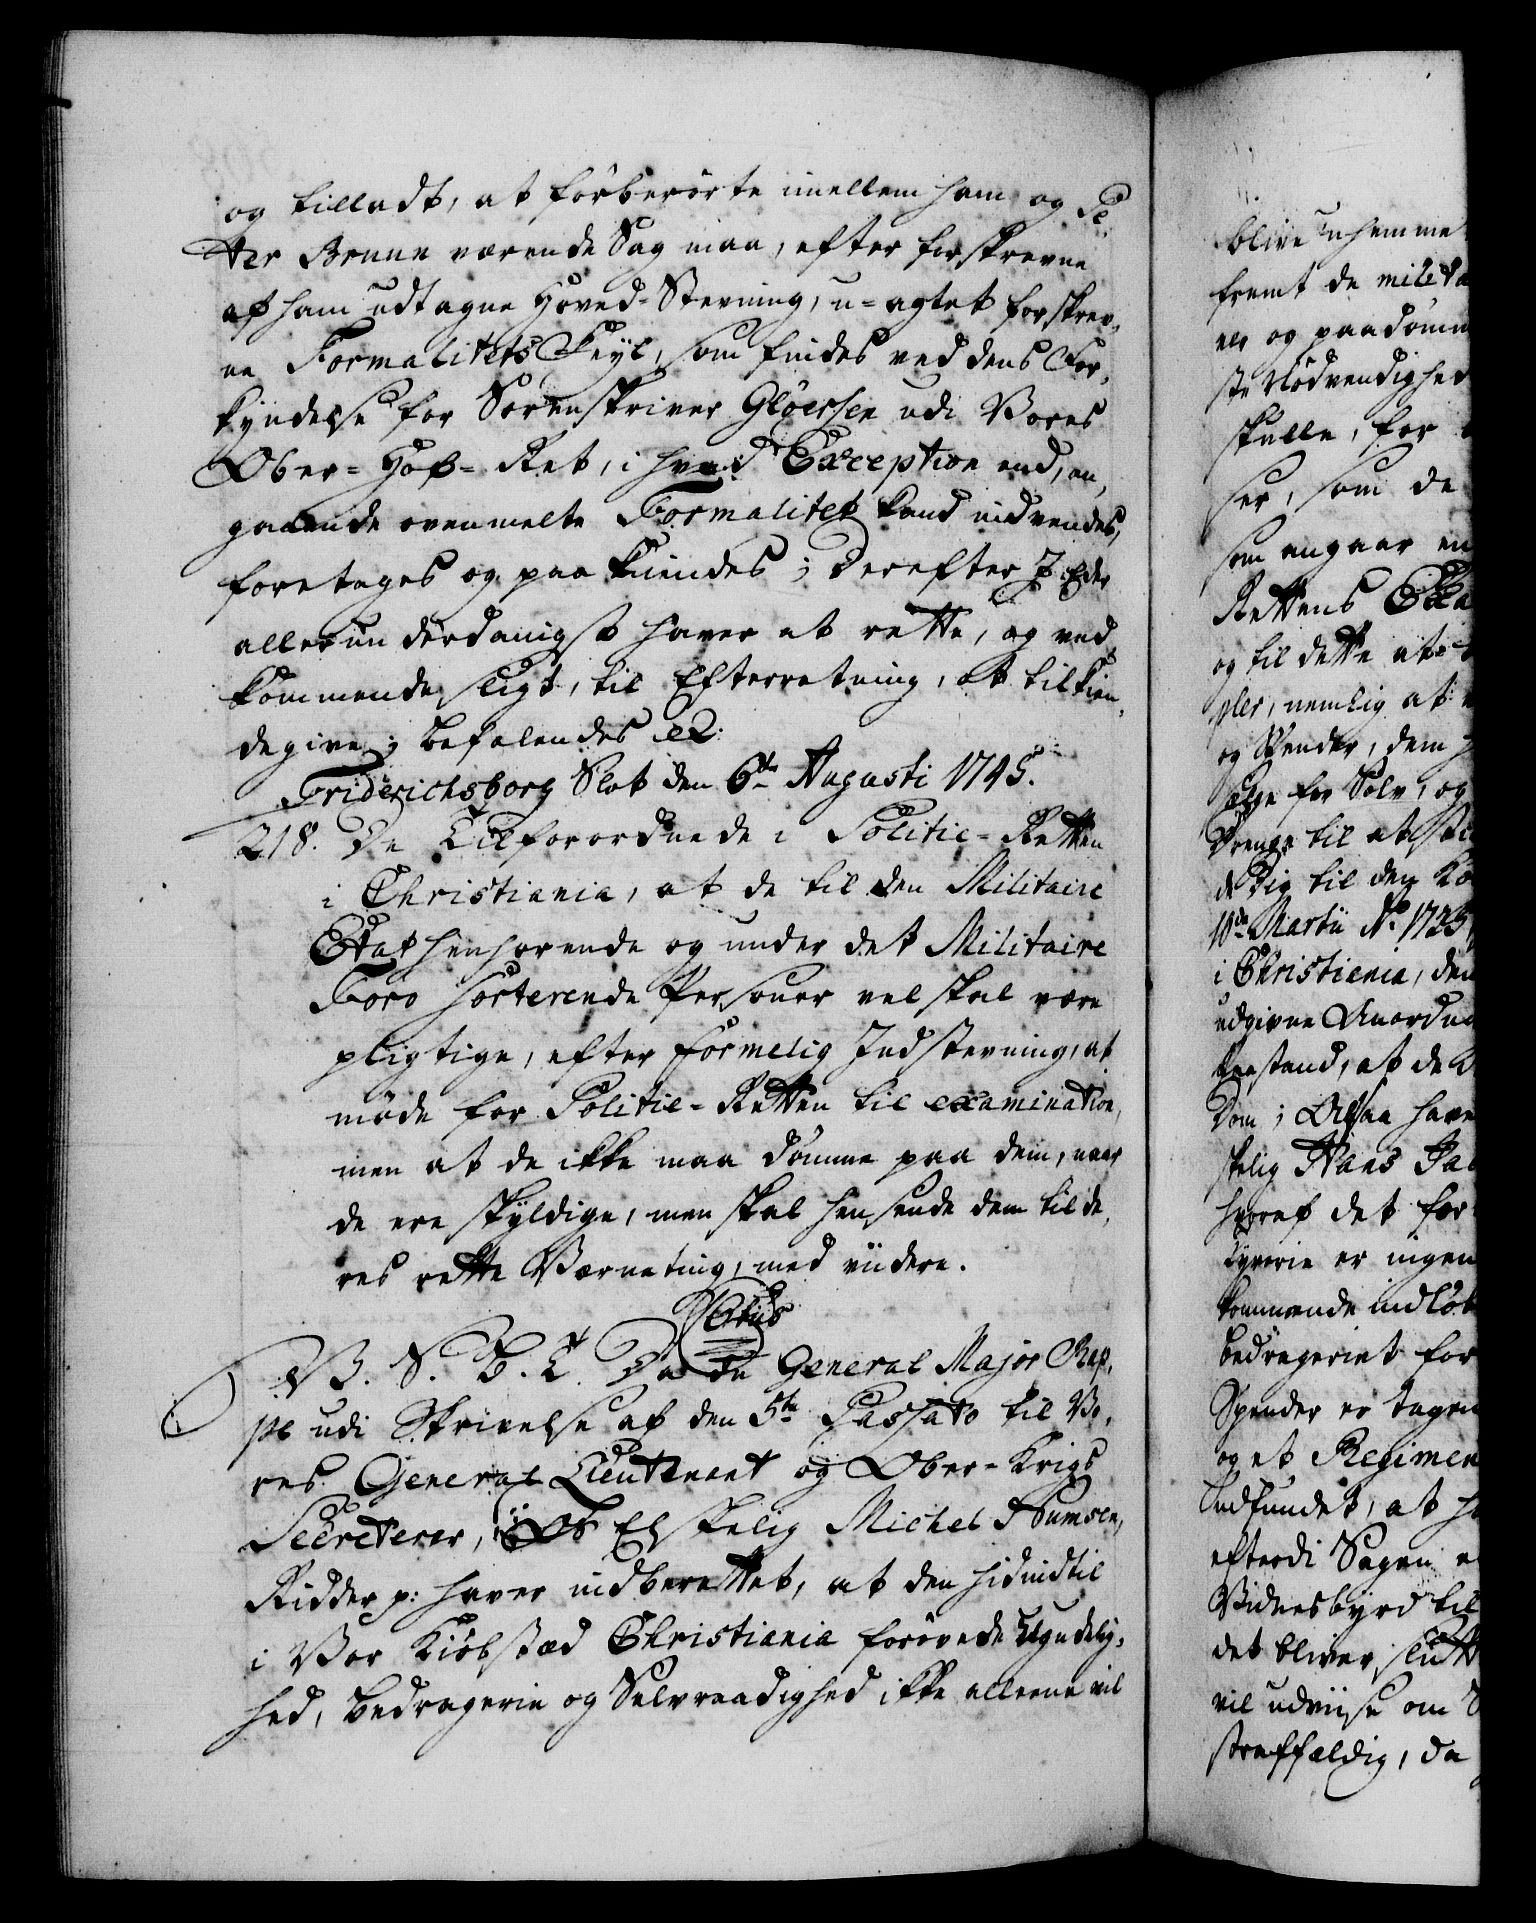 og tilladt, at forberørte imellem ham og Pe-
tter Brunn værende Sag maa, efter forskrevne
af ham udtagne Hoved-Stevning, u-agtet forskrev-
ne Formalitets Feyl, som findes ved dens For-
kyndelse for Sorenskriver Gløersen udi Vores
Ober-Hof-Ret, i hvad Exception end, an-
gaaende ovenmelte Formalitet kand indvendes,
foretages og paa kiendes; Derefter I Eder
allerunderdanigst haver at rette, og ved-
kommende sligt, til Efterretning, at tilkien-
degive; befalendes etc.
Friderichsborg Slot den 6te Augusti 1745.
218. De Tilforordnede i Politie-Retten
i Christiania, at de til den Militaire
Etat henhørende og under det Militaire
Foro sorterende Personer vel skal være
pligtige, efter formelig Indstevning, at
møde for Politie-Retten til examination,
men at de ikke maa dømme paa dem, naar
de ere skyldige, men skal hensende dem til de-
res rette Værneting, med viidere.
C6tus
V. S. B. T. Da de General Major Rap-
pe udi Skrivelse af den 5te Passato til Vo-
res General Lieutenant og Ober-Krigs
Secreterer, Os Elskelig Michel Numsen,
Ridder p: haver indberettet, at den hidindtil
i Vor Kiøbstæd Christiania forøvede Ugudelig-
hed, bedragerie og Selvraadighed ikke alleene vil
blive uhemme
fremt de milita
ner og paadømm
ste Nødvendighed
skulle, for
ser, som de
som angaar en
Rettens Exa
og til dette at
pler, nemlig at
og Spender, dem
sælge for Sølv, og
Drenge til at
deelig til den
10de Martii Ao 1735
i Christiania, den
udgivne Anordn
Forstand, at de
Dom; Altsaa have
skelig Hans Jac
hvoraf det for
Tyverie er ingen
kommende indløb
bedrageriet for
Spender er tagen
og et Regimen
Indfundet, at h
efterdi Sagen e
Vidnesbyrd til
det bliver slutt
vil udviise om S
straffældig, da